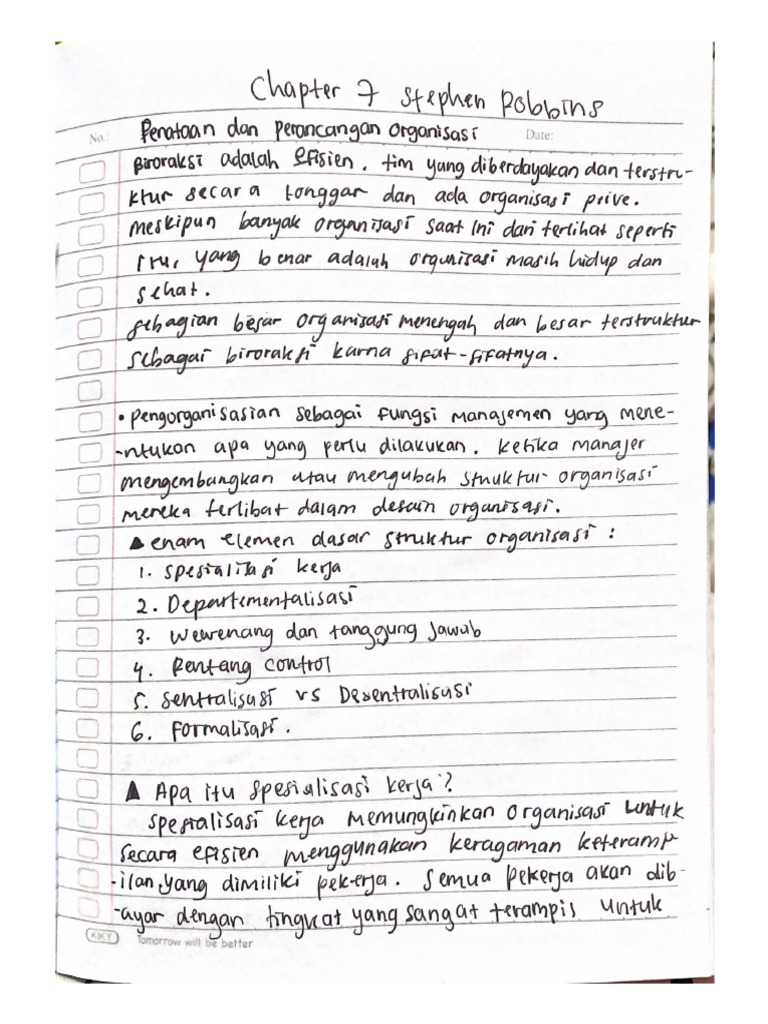 Chapter 7 Stephen Robbins
No.: Penataan dan perancangan organisasi Date:
Biroraksi adalah efisien. tim yang diberdayakan dan terstru-
ktur secara longgar dan ada organisasi prive.
meskipun banyak organisasi saat ini dari terlihat seperti
itu, yang benar adalah organisasi masih hidup dan
sehat.
sebagian besar organisasi menengah dan besar terstruktur
sebagai biroraksi karna sifat-sifatnya.
• pengorganisasian sebagai fungsi manajemen yang mene-
-ntukan apa yang perlu dilakukan. ketika manajer
mengembangkan atau mengubah struktur organisasi
mereka terlibat dalam desain organisasi.
▲ enam elemen dasar struktur organisasi :
1. spesialisasi kerja
2. Departementalisasi
3. wewenang dan tanggung jawab
4. Rentang control
5. sentralisasi vs Desentralisasi
6. formalisasi.
▲ Apa itu spesialisasi kerja?
spesialisasi kerja memungkinkan organisasi untuk
secara efisien menggunakan keragaman keteramp-
-ilan yang dimiliki pekerja. semua pekerja akan dib-
-ayar dengan tingkat yang sangat terampis untuk
KIKY Tomorrow will be better